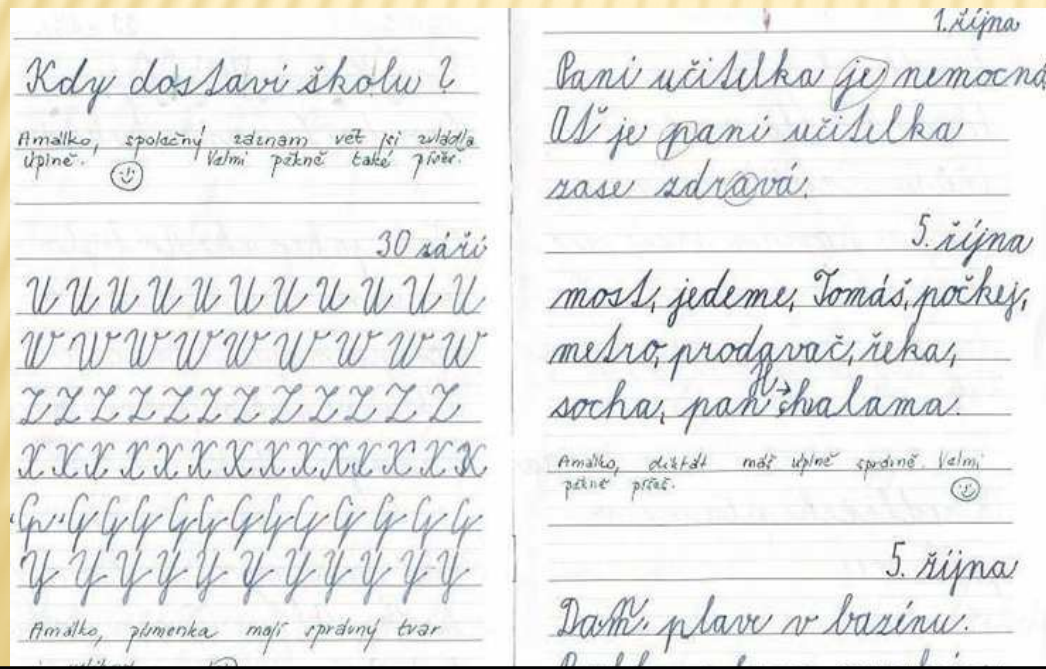 Kdy dostaví školu?
Amálko, společný záznam vět jsi zvládla
úplně. Velmi pěkně také píšeš.
30 září
U U U U U U U U U U U
W W W W W W W W W W
Z Z Z Z Z Z Z Z Z Z Z
X X X X X X X X X X X X X
G G G G G G G G G G G
Y Y Y Y Y Y Y Y Y Y Y
Amálko, písmenka mají správný tvar
1. října
Paní učitelka je nemocná.
Ať je paní učitelka
zase zdravá.
5. října
most, jedeme, Tomáš, počkej,
metro, prodavač, řeka,
socha, paní chalama.
Amálko, diktát máš úplně správně. Velmi
pěkně píšeš.
5. října
plave v bazénu.